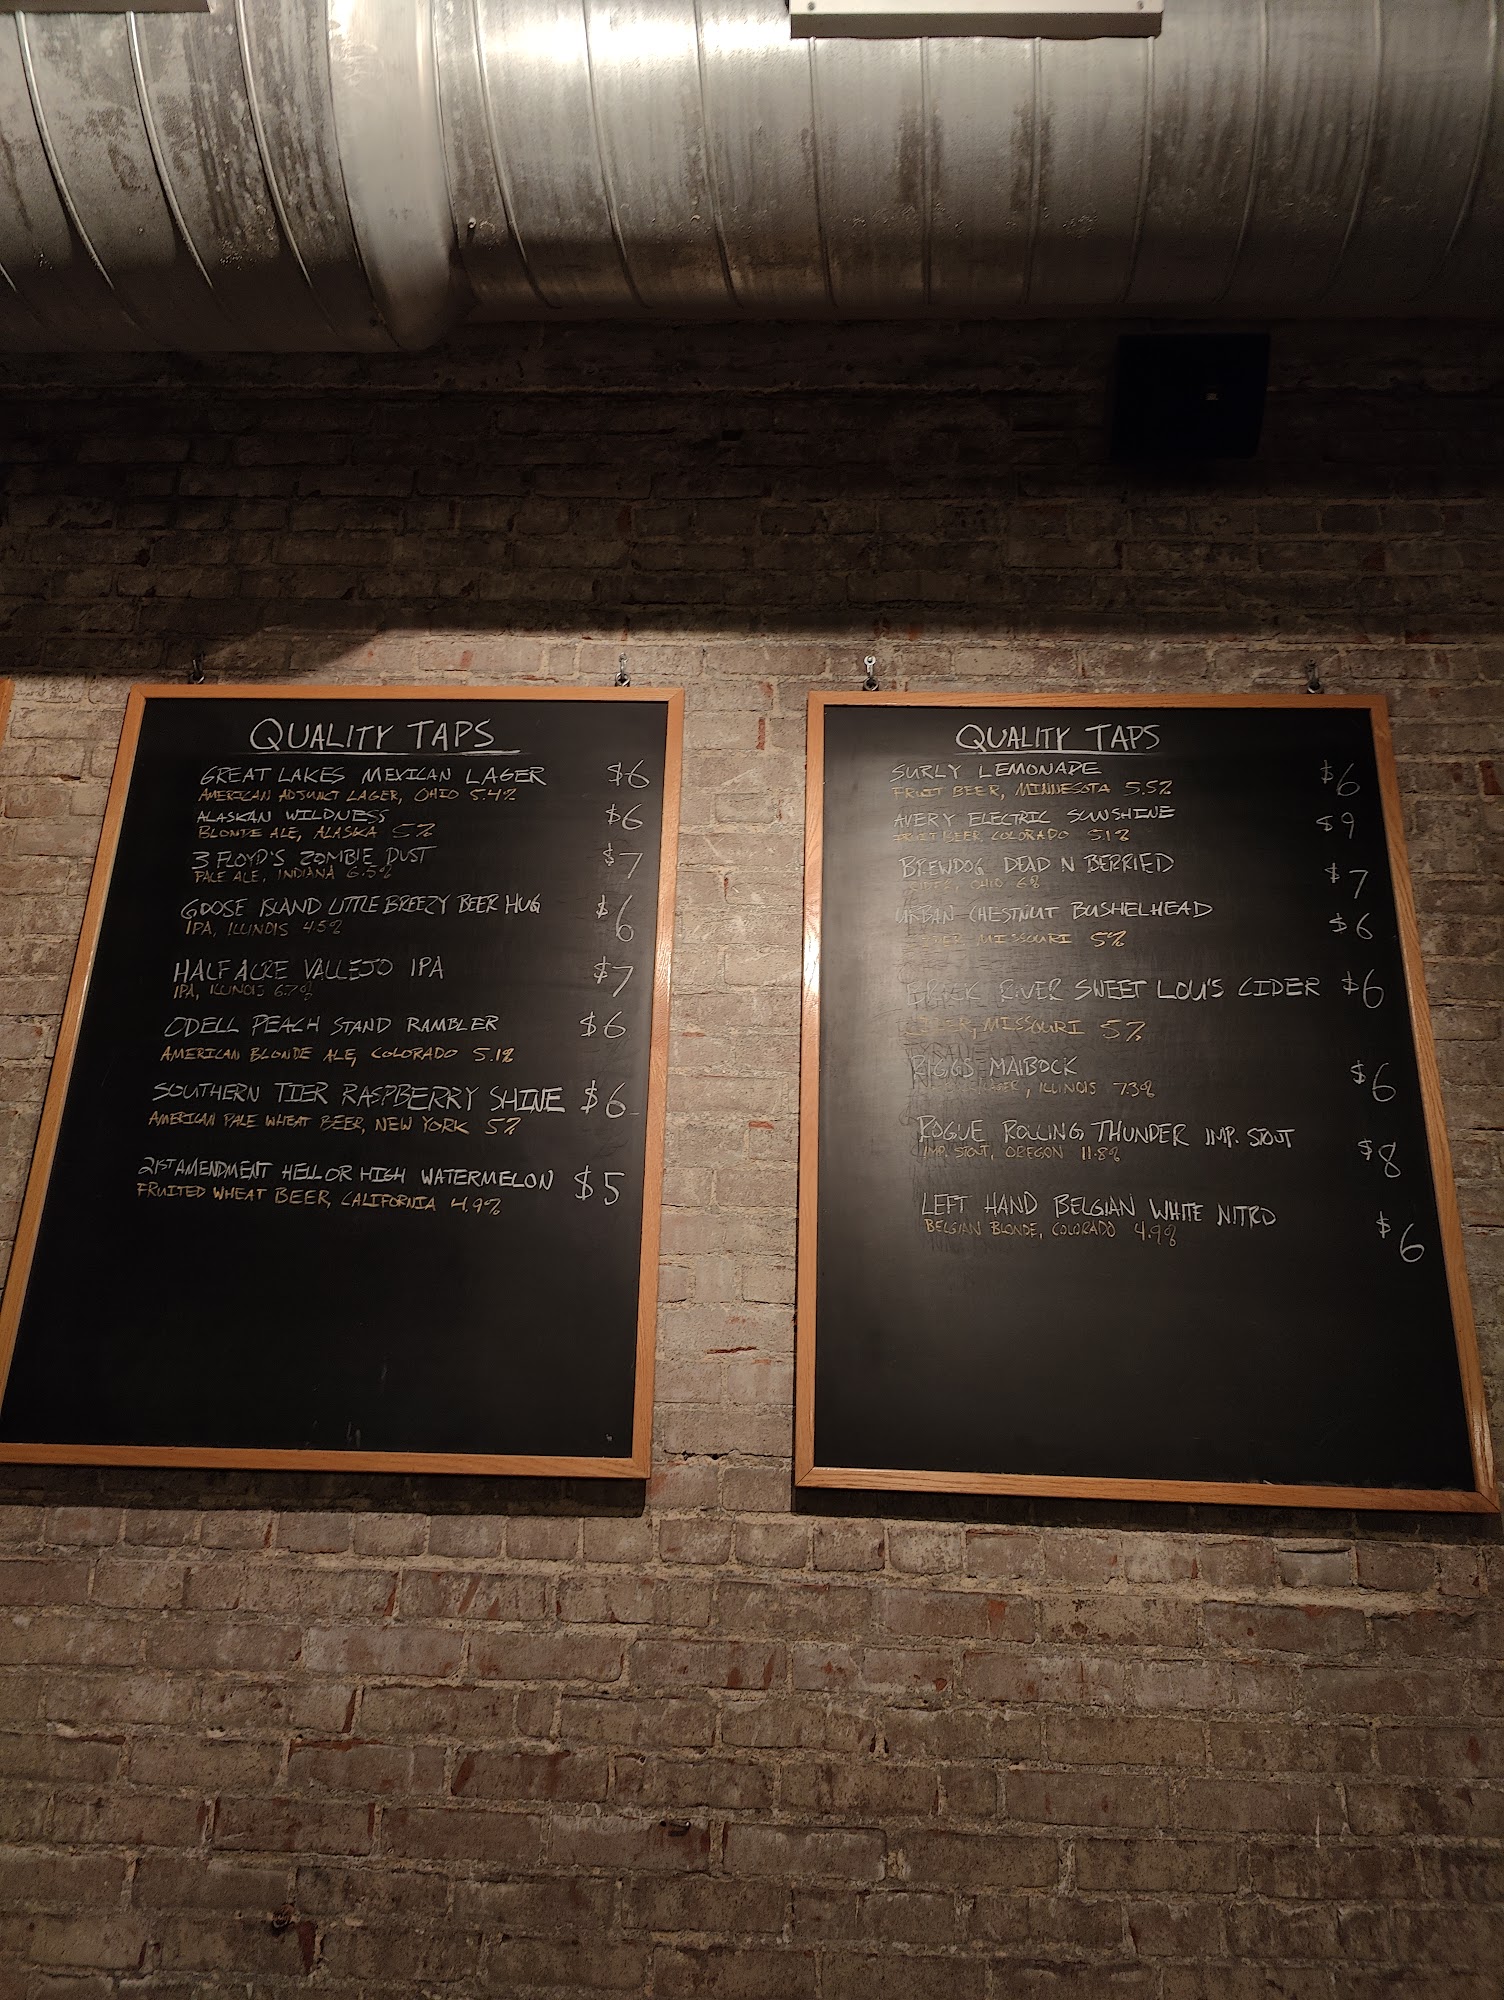 QUALITY TAPS
GREAT LAKES MEXICAN LAGER $6
AMERICAN ADJUNCT LAGER, OHIO 5.4%
ALASKAN WILDNESS $6
BLONDE ALE, ALASKA 5%
3 FLOYD'S ZOMBIE DUST $7
PALE ALE, INDIANA 6.5%
GOOSE ISLAND LITTLE BREEZY BEER HUG $6
IPA, ILLINOIS 4.5%
HALF ACRE VALLEJO IPA $7
IPA, ILLINOIS 6.7%
ODELL PEACH STAND RAMBLER $6
AMERICAN BLONDE ALE, COLORADO 5.1%
SOUTHERN TIER RASPBERRY SHINE $6
AMERICAN PALE WHEAT BEER, NEW YORK 5%
21ST AMENDMENT HELL OR HIGH WATERMELON $5
FRUITED WHEAT BEER, CALIFORNIA 4.9%
QUALITY TAPS
SURLY LEMONADE $6
FRUIT BEER, MINNESOTA 5.5%
AVERY ELECTRIC SUNSHINE $9
FRUIT BEER, COLORADO 5.1%
BREWDOG DEAD N BERRIED $7
CIDER, OHIO 6%
URBAN CHESTNUT BUSHELHEAD $6
CIDER, MISSOURI 5%
BRICK RIVER SWEET LOU'S CIDER $6
CIDER, MISSOURI 5%
RIGGS MAIBOCK $6
LAGER, ILLINOIS 7.3%
ROGUE ROLLING THUNDER IMP. STOUT $8
IMP. STOUT, OREGON 11.8%
LEFT HAND BELGIAN WHITE NITRO $6
BELGIAN BLONDE, COLORADO 4.9%